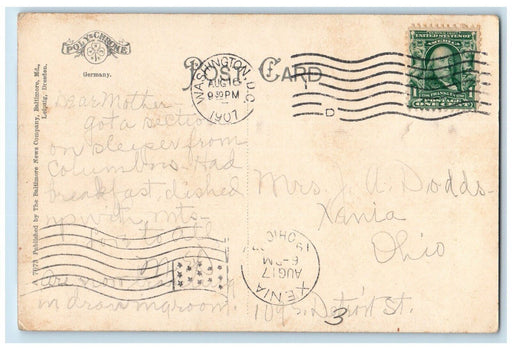 POLY-CHROME
Germany.
A 7071 Published by The Baltimore News Company, Baltimore, Md., Leipzig, Dresden.
POST CARD
WASHINGTON, D.C.
AUG 16
9 30 PM
1907
D
UNITED STATES OF AMERICA
POSTAGE
ONE CENT
Dear Mother
got a section
on sleeper from
Columbus. Had
breakfast, dished
up with
Love to all
Are now
in drawing room.
Mrs. J. A. Dodds
Xenia
Ohio
189 S. Detroit St.
3
XENIA
AUG 17
6-PM
OHIO